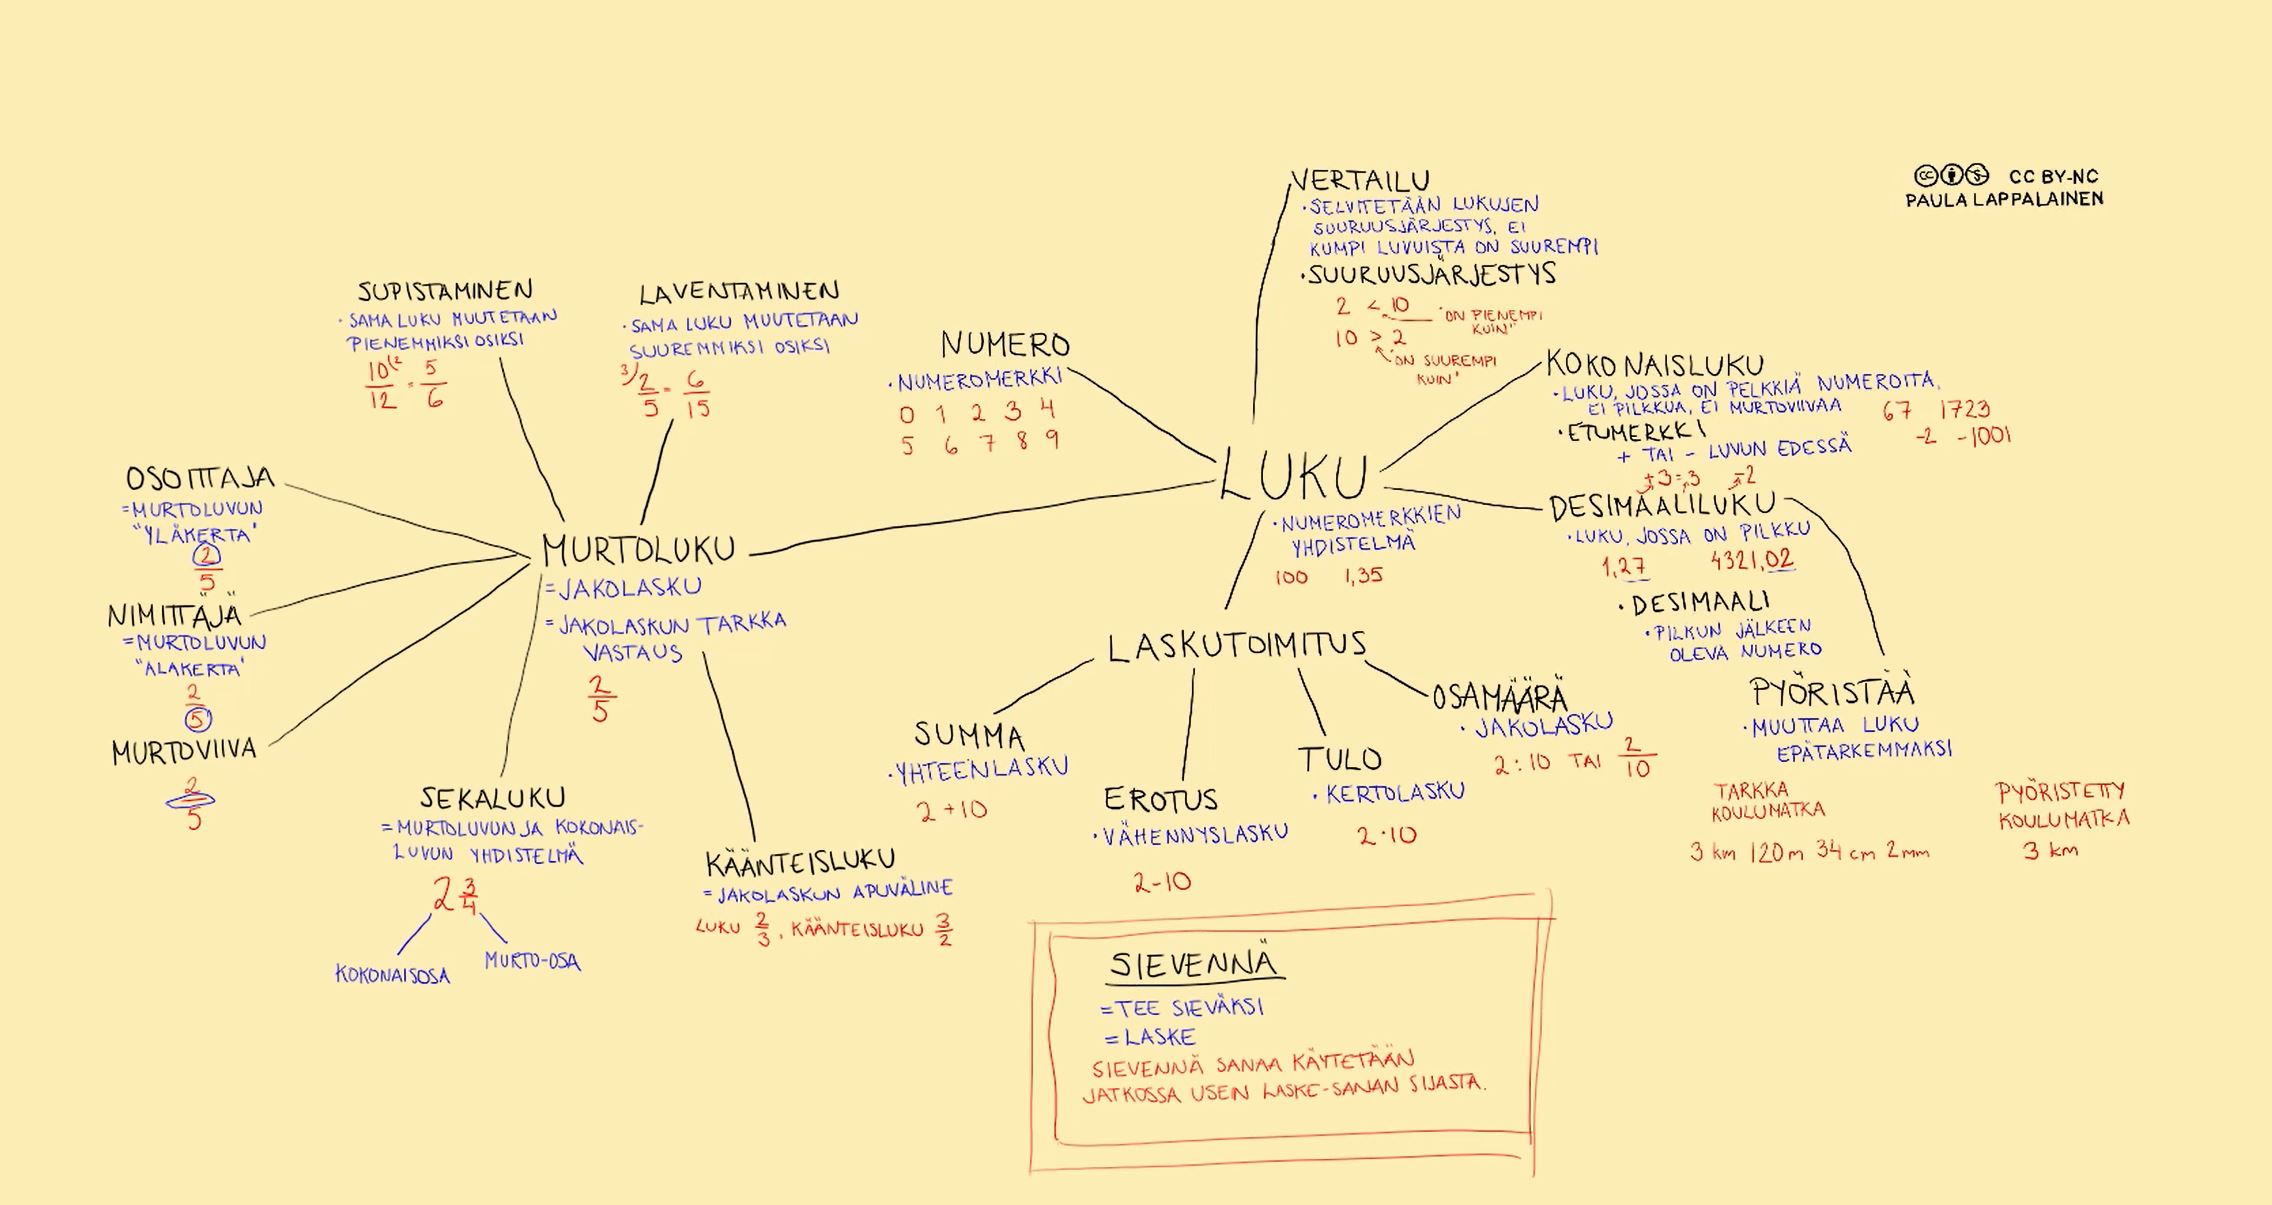 CC BY-NC
PAULA LAPPALAINEN
VERTAILU
• SELVITETÄÄN LUKUJEN
SUURUUSJÄRJESTYS, EI
KUMPI LUVUISTA ON SUUREMPI
• SUURUUSJÄRJESTYS
2 < 10
"ON PIENEMPI
KUIN"
10 > 2
"ON SUUREMPI
KUIN"
SUPISTAMINEN
• SAMA LUKU MUUTETAAN
PIENEMMIKSI OSIKSI
10(2/12 = 5/6
LAVENTAMINEN
• SAMA LUKU MUUTETAAN
SUUREMMIKSI OSIKSI
3)2/5 = 6/15
NUMERO
• NUMEROMERKKI
0 1 2 3 4
5 6 7 8 9
KOKONAISLUKU
• LUKU, JOSSA ON PELKKIÄ NUMEROITA,
EI PILKKUA, EI MURTOVIIVAA
67 1723
-2 -1001
• ETUMERKKI
+ TAI - LUVUN EDESSÄ
+3=3 -2
LUKU
• NUMEROMERKKIEN
YHDISTELMÄ
100 1,35
DESIMAALILUKU
• LUKU, JOSSA ON PILKKU
1,27 4321,02
• DESIMAALI
• PILKUN JÄLKEEN
OLEVA NUMERO
PYÖRISTÄÄ
• MUUTTAA LUKU
EPÄTARKEMMAKSI
TARKKA
KOULUMATKA
3 km 120 m 34 cm 2 mm
PYÖRISTETTY
KOULUMATKA
3 km
OSOITTAJA
= MURTOLUVUN
"YLÄKERTA"
2/5
NIMITTÄJÄ
= MURTOLUVUN
"ALAKERTA"
2/5
MURTOVIIVA
2/5
MURTOLUKU
= JAKOLASKU
= JAKOLASKUN TARKKA
VASTAUS
2/5
SEKALUKU
= MURTOLUVUN JA KOKONAIS-
LUVUN YHDISTELMÄ
2 3/4
KOKONAISOSA
MURTO-OSA
KÄÄNTEISLUKU
= JAKOLASKUN APUVÄLINE
LUKU 2/3, KÄÄNTEISLUKU 3/2
LASKUTOIMITUS
SUMMA
• YHTEENLASKU
2 + 10
EROTUS
• VÄHENNYSLASKU
2-10
TULO
• KERTOLASKU
2·10
OSAMÄÄRÄ
• JAKOLASKU
2:10 TAI 2/10
SIEVENNÄ
= TEE SIEVÄKSI
= LASKE
SIEVENNÄ SANAA KÄYTETÄÄN
JATKOSSA USEIN LASKE-SANAN SIJASTA.